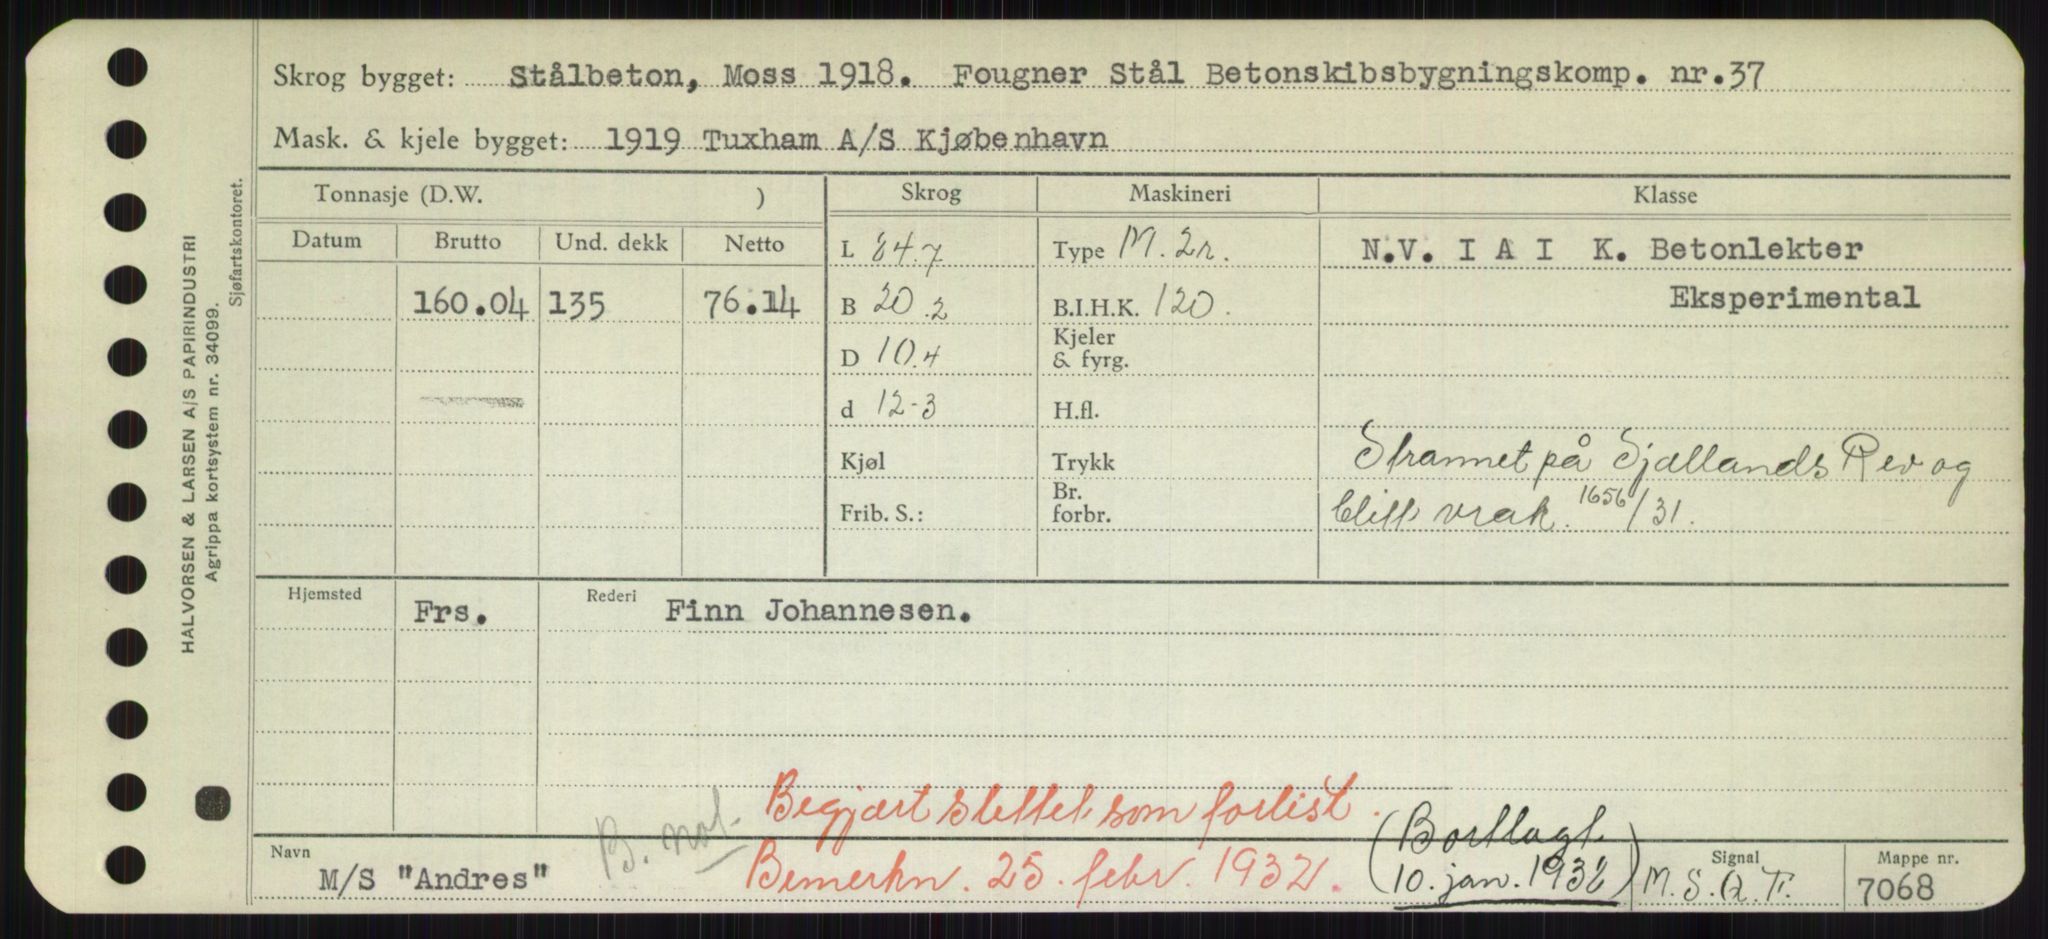 Skrog bygget: Stålbeton, Moss 1918. Fougner Stål Betonskibsbygningskomp. nr.37
Mask. & kjele bygget: 1919 Tuxham A/S Kjøbenhavn
HALVORSEN & LARSEN A/S PAPIRINDUSTRI
Agrippa kortsystem nr. 34099.
Sjøfartskontoret.
Tonnasje (D.W. )
Skrog
Maskineri
Klasse
Datum
Brutto
Und. dekk
Netto
160.04
135
76.14
L 84.7
B 20.2
D 10.4
d 12-3
Kjøl
Frib. S.:
Type M. 2r.
B.I.H.K. 120.
Kjeler
& fyrg.
H.fl.
Trykk
Br.
forbr.
N.V. I A I K. Betonlekter
Eksperimental
Strannet på Sjællands Rev og
blitt vrak. 1656/31.
Hjemsted
Frs.
Rederi
Finn Johannesen.
Begjært slettet som forlist.
B. not.
Bemerkn. 25. febr. 1932.
(Bortlagt
10. jan. 1932)
Navn
M/S "Andres"
Signal
M.S.Q.F.
Mappe nr.
7068